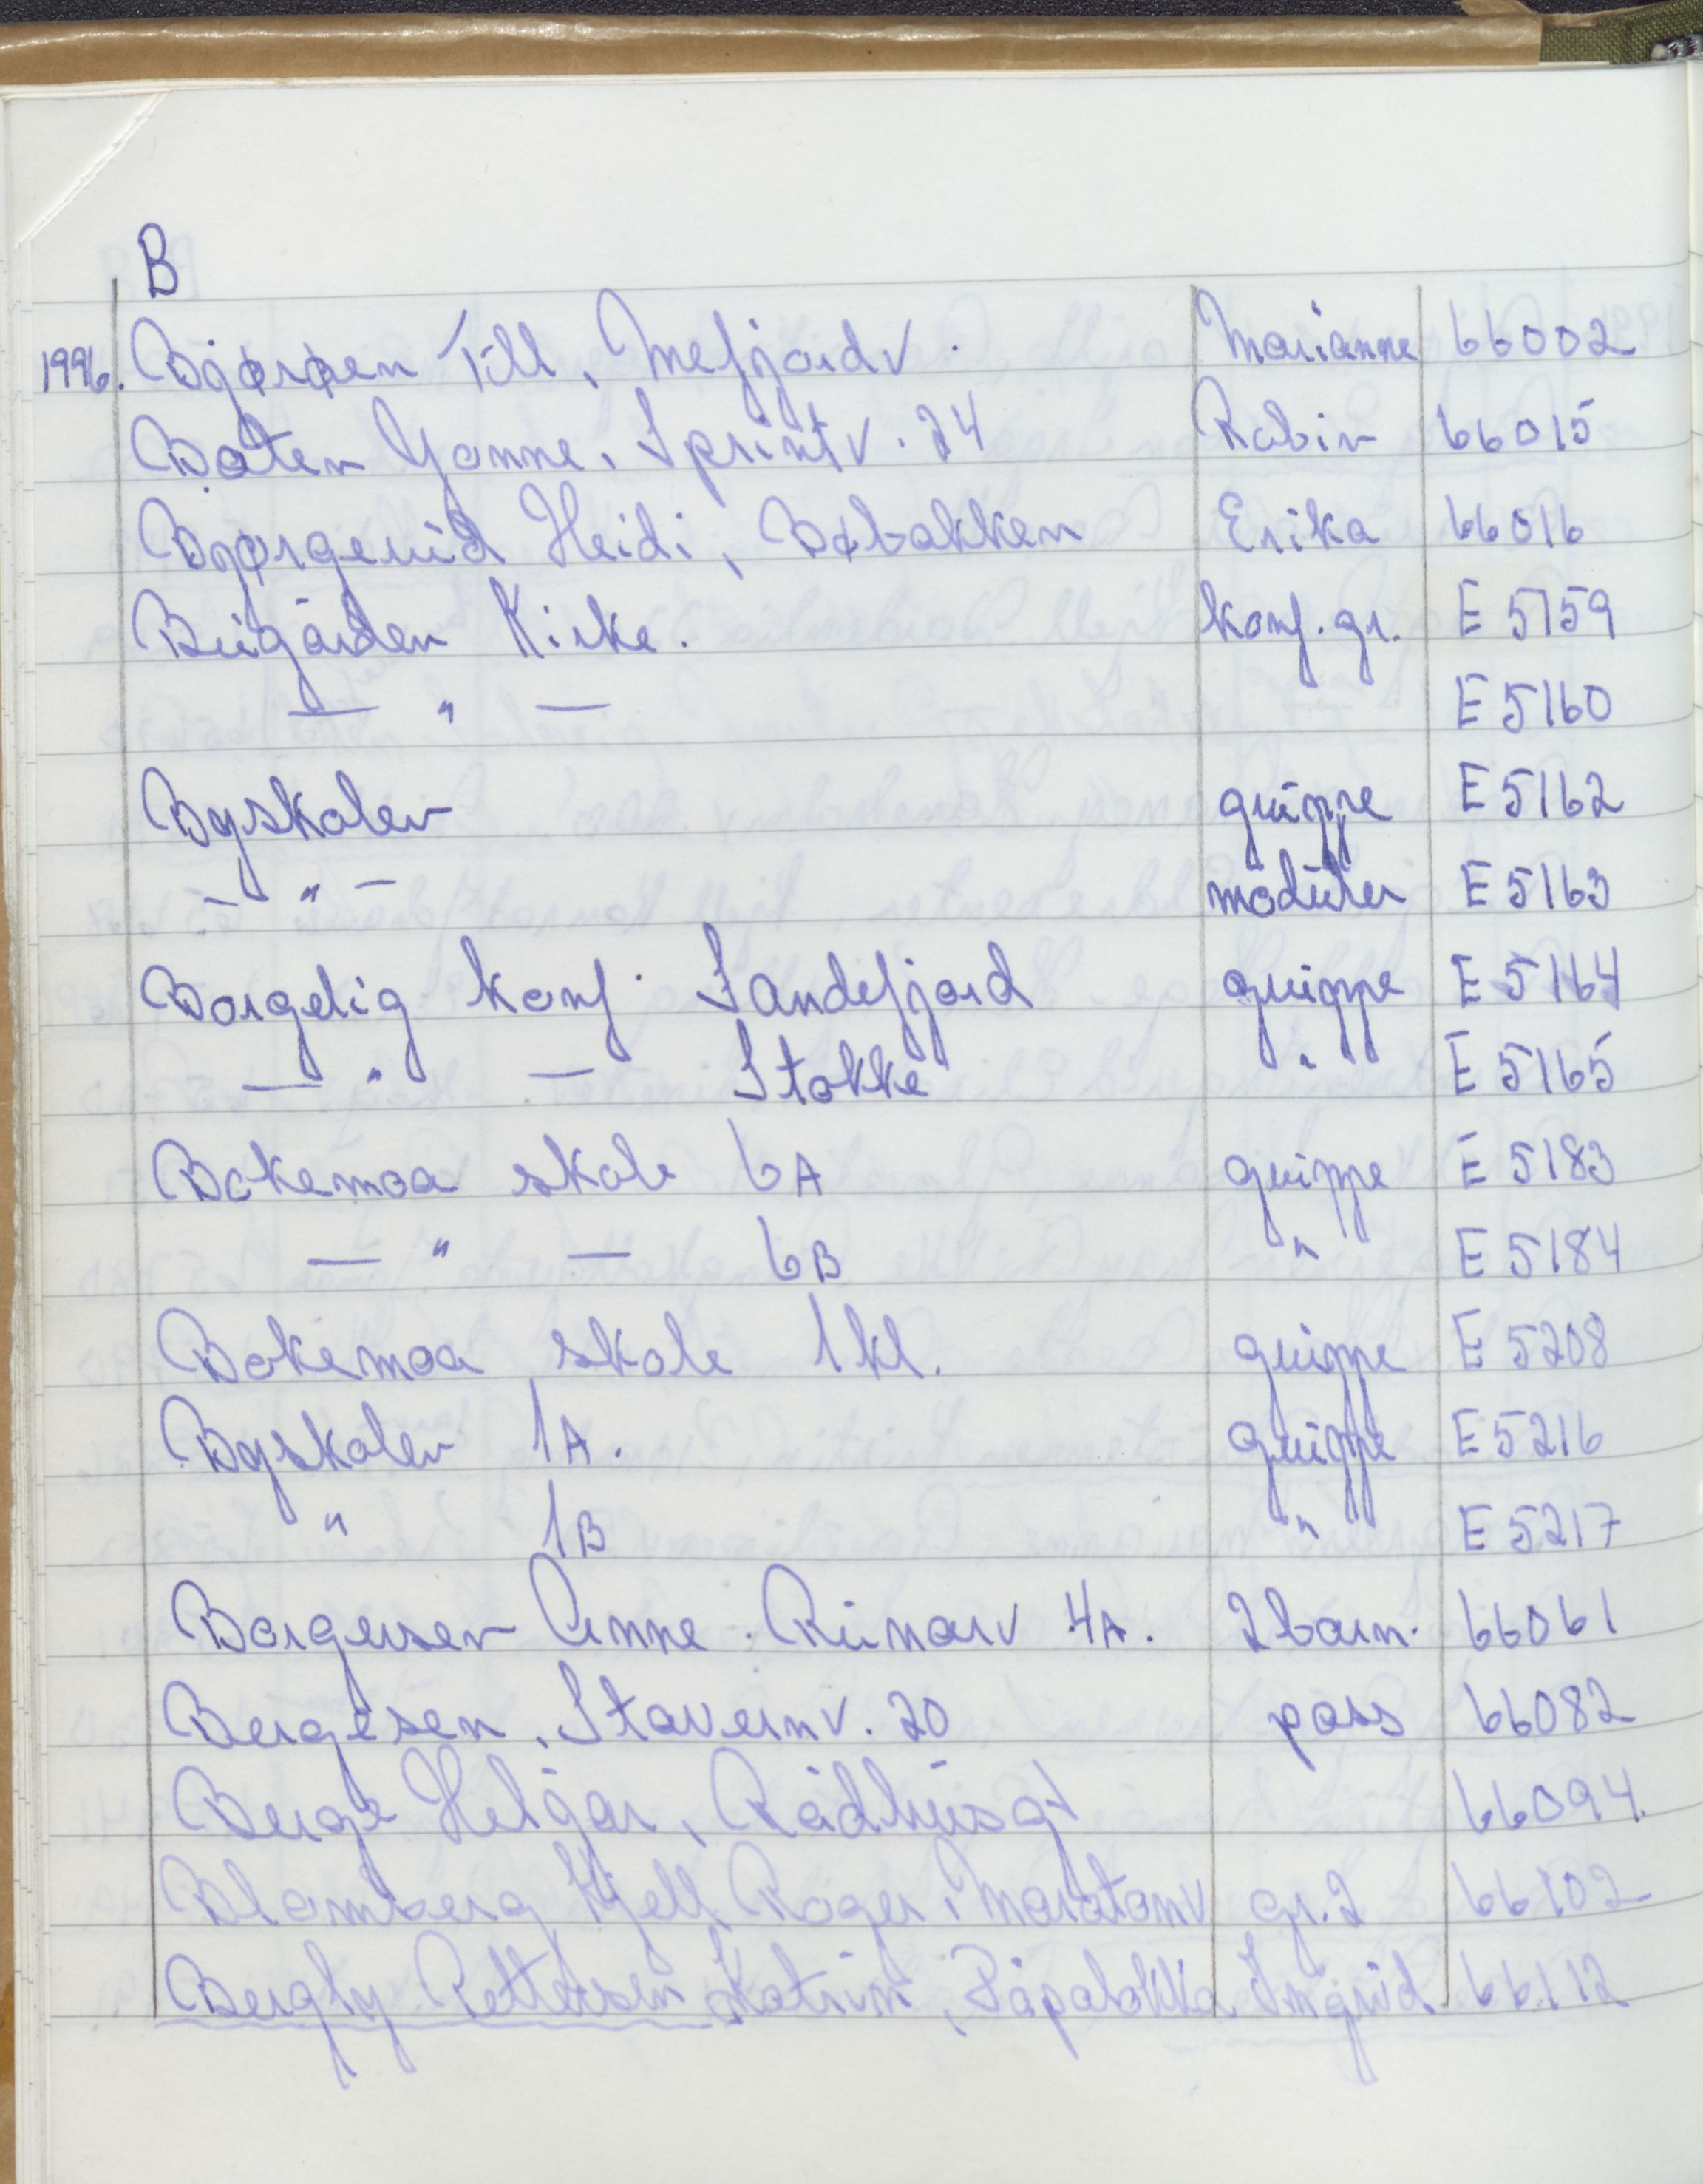 B
1996. Bjørøen Till, Mefjordv. Marianne 66002
Boten Yonne, Sprintv. 24 Robin 66015
Bjørgerud Heidi, Bøbakken Erika 66016
Bugården Kirke. konf. gr. E 5159
— " — E 5160
Byskolen gruppe E 5162
— " — moduler E 5163
Borgelig konf. Sandefjord gruppe E 5164
— " — Stokke " E 5165
Bokemoa skole 6A gruppe E 5183
— " — 6B " E 5184
Bokemoa skole 1 kl. gruppe E 5208
Byskolen 1A. gruppe E 5216
" 1B " E 5217
Borgersen Anne. Runarv 4A. 2 barn. 66061
Bergesen, Stavernv. 20 pass 66082
Berge Helgar, Rådhusgt 66094.
Blomberg Kjell Roger, Maratonv gr. 2 66102
Bergly Pettersen Katrin, Påpaløkka Ingrid 66112